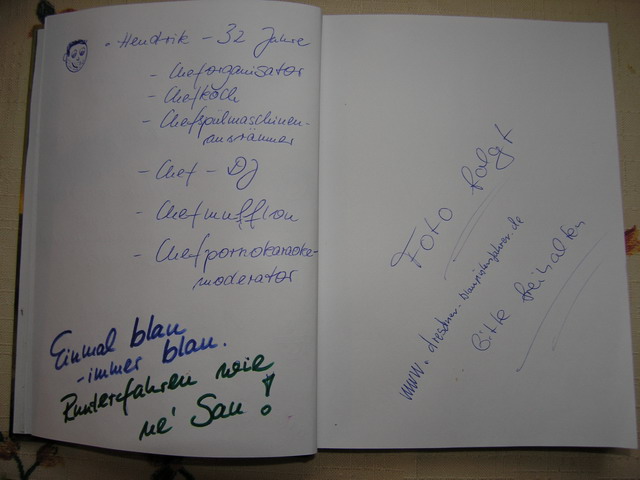 • Hendrik - 32 Jahre
- Cheforganisator
- Chefkoch
- Chefspülmaschinen-
ausräumer
- Chef - DJ
- Chefmufflon
- Chefpornokaraoke-
moderator
Einmal blau
-immer blau.
Runterfahren wie
ne' Sau!
Foto folgt
Bitte freihalten